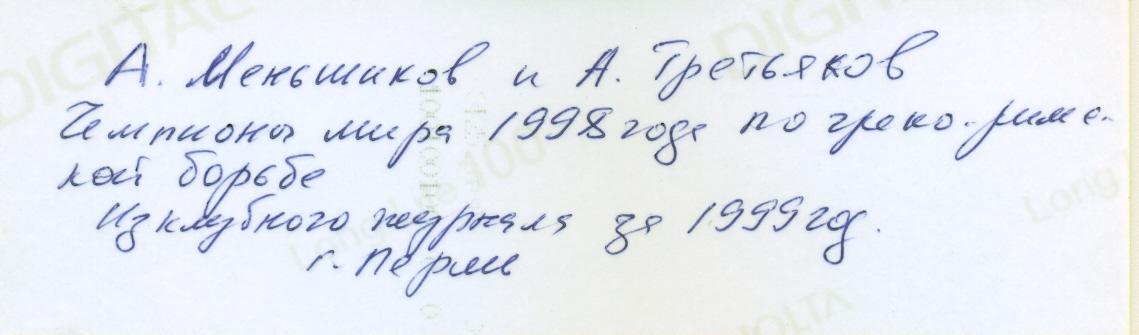 А. Меньшиков и А. Третьяков
Чемпионы мира 1998 года по греко-римс-
кой борьбе
Из клубного журнала за 1999 год.
г. Пермь
DIGITAL
Long Life 100
Long